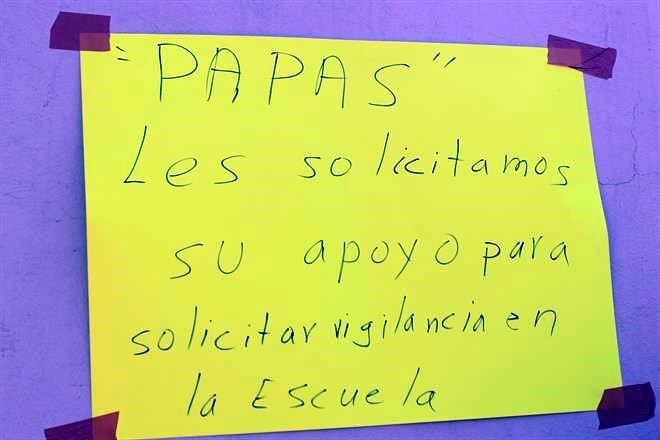 "PAPAS"
Les solicitamos
su apoyo para
solicitar vigilancia en
la Escuela